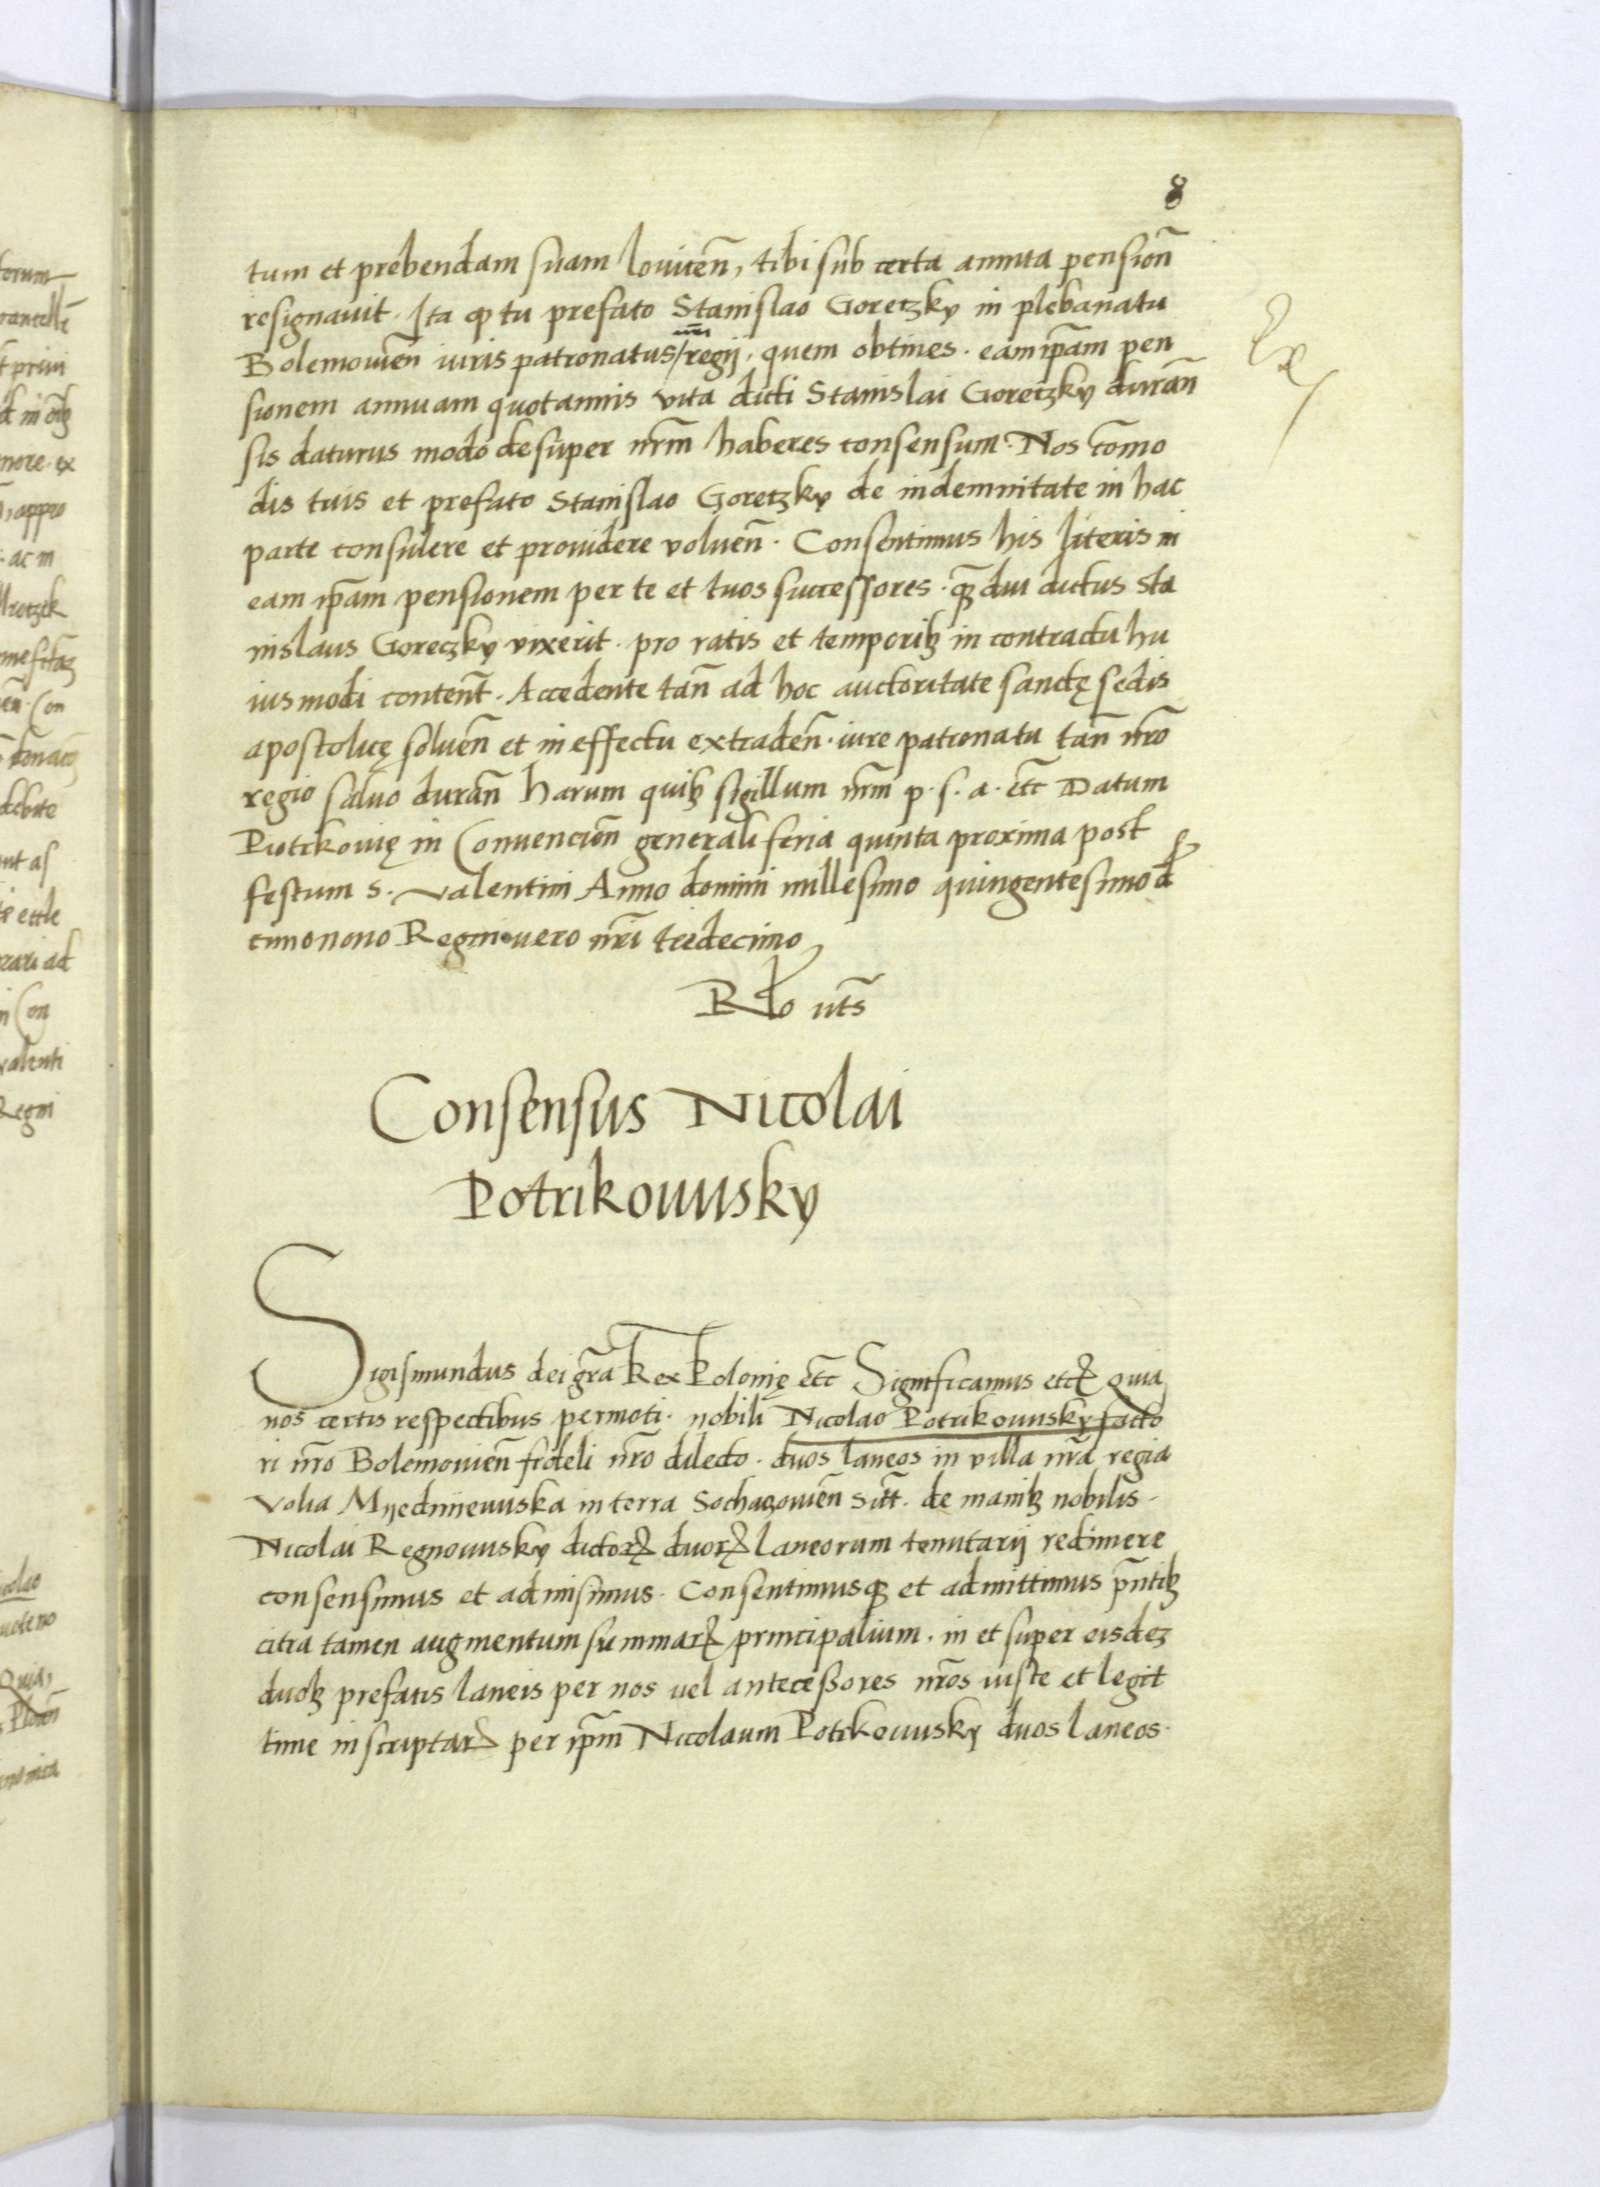 8
tum et prebendam suam louicen̄, tibi sub certa annua pension̄
resignauit. Ita ꝙ tu prefato Stanislao Goretzky in plebanatu
Bolemouien̄ iuris patronatus / nr̄i regij, quem obtines. eam ip̄am pen
sionem annuam quotannis vita dicti Stanislai Goretzky duran̄
sis daturus modo desuper nr̄m haberes consensum. Nos com̄o
dis tuis et prefato Stanislao Goretzky de indemnitate in hac
parte consulere et prouidere voluen̄. Consentimus his literis in
eam ip̄am pensionem per te et tuos successores. qᷓdiu dictus Sta
nislaus Goreczky vixerit. pro ratis et temporibꝫ in contractu hu
iusmodi content̄. Accedente tan̄ ad hoc auctoritate sanctę sedis
apostolicę soluen̄ et in effectu extraden̄. iure patronatu tan̄ nr̄o
regio saluo duran̄ harum quibꝫ sigillum nr̄m p. s. a. etc̄ Datum
Piotrkouię in Conuencion̄ generali feria quinta proxima post
festum S. Valentini Anno domini millesimo quingentesimo de
cimonono Regni vero nr̄i tredecimo
Rlo vts̄
Consensus Nicolai
Potrikouusky
Sigismundus dei gr̄a Rex Polonię etc̄ Significamus etcꝝ Quia
nos certis respectibus permoti. nobili Nicolao Potrikouusky facto
ri nr̄o Bolemouien̄ fideli nr̄o dilecto. duos laneos in villa nr̄a regia
Volia Myednijeuuska in terra Sochaczouien̄ sitt̄. de manibꝫ nobilis.
Nicolai Regnouusky dictoꝝ duoꝝ laneorum tenutarij redimere
consensimus et admisimus. Consentimusqꝫ et admittimus p̄ntibꝫ
citra tamen augmentum summaꝝ principalium. in et super eisdeꝫ
duobꝫ prefatis laneis per nos vel antecessores nr̄os iuste et legit
time inscriptaꝝ per ip̄m Nicolaum Potrkouusky duos laneos.